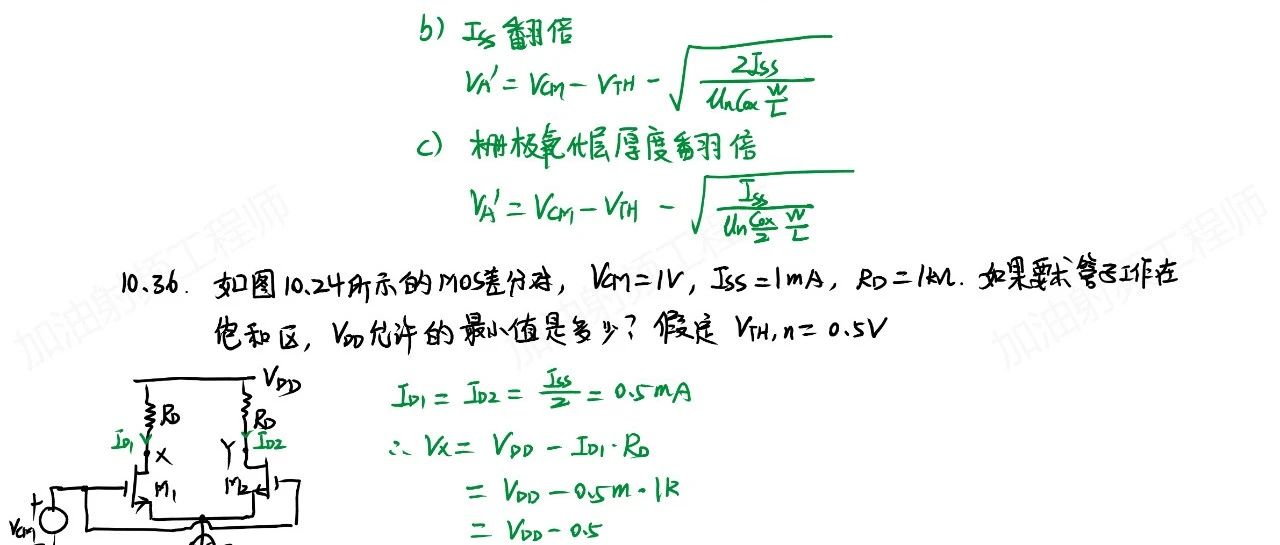 b) ISS 翻倍
VA' = VCM - VTH - √(2ISS / (UnCox W/L))
c) 栅极氧化层厚度翻倍
VA' = VCM - VTH - √(ISS / (Un Cox/2 W/L))
10.36. 如图10.24所示的MOS差分对, VCM=1V, ISS=1mA, RD=1kΩ. 如果要求管子工作在
饱和区, VDD允许的最小值是多少? 假定 VTH,n = 0.5V
VDD
RD
RD
ID1
X
Y
ID2
M1
M2
+
VCM
ID1 = ID2 = ISS/2 = 0.5mA
∴ VX = VDD - ID1·RD
= VDD - 0.5m·1k
= VDD - 0.5
加油射频工程师
加油射频工程师